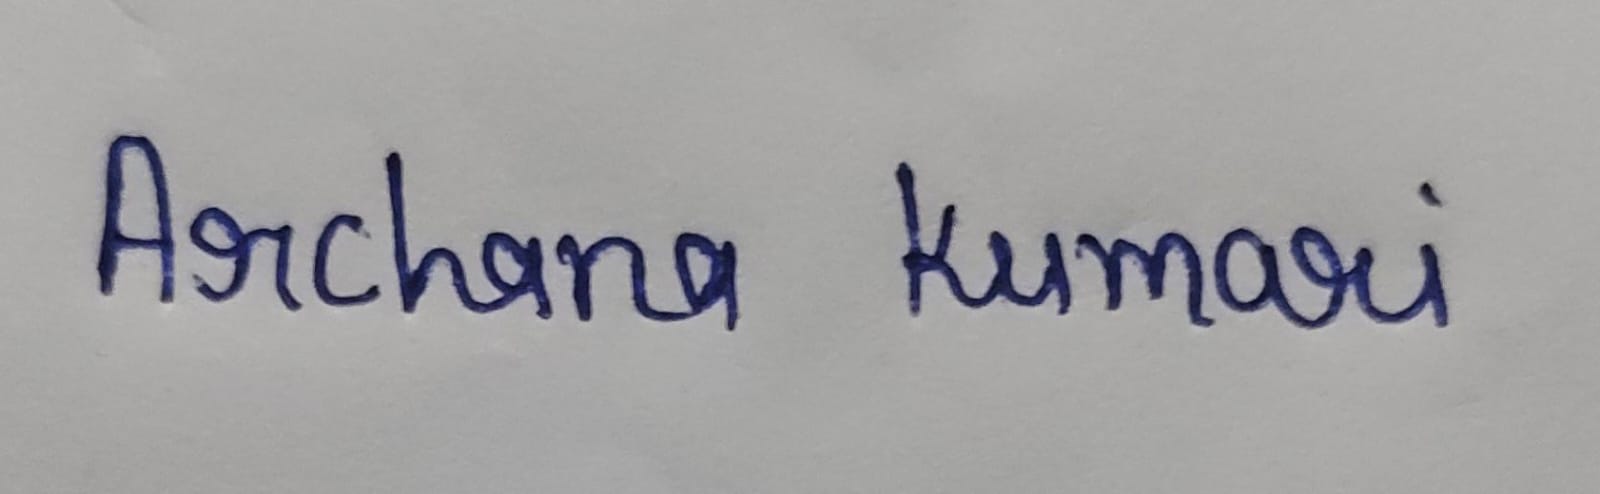 Archana Kumari